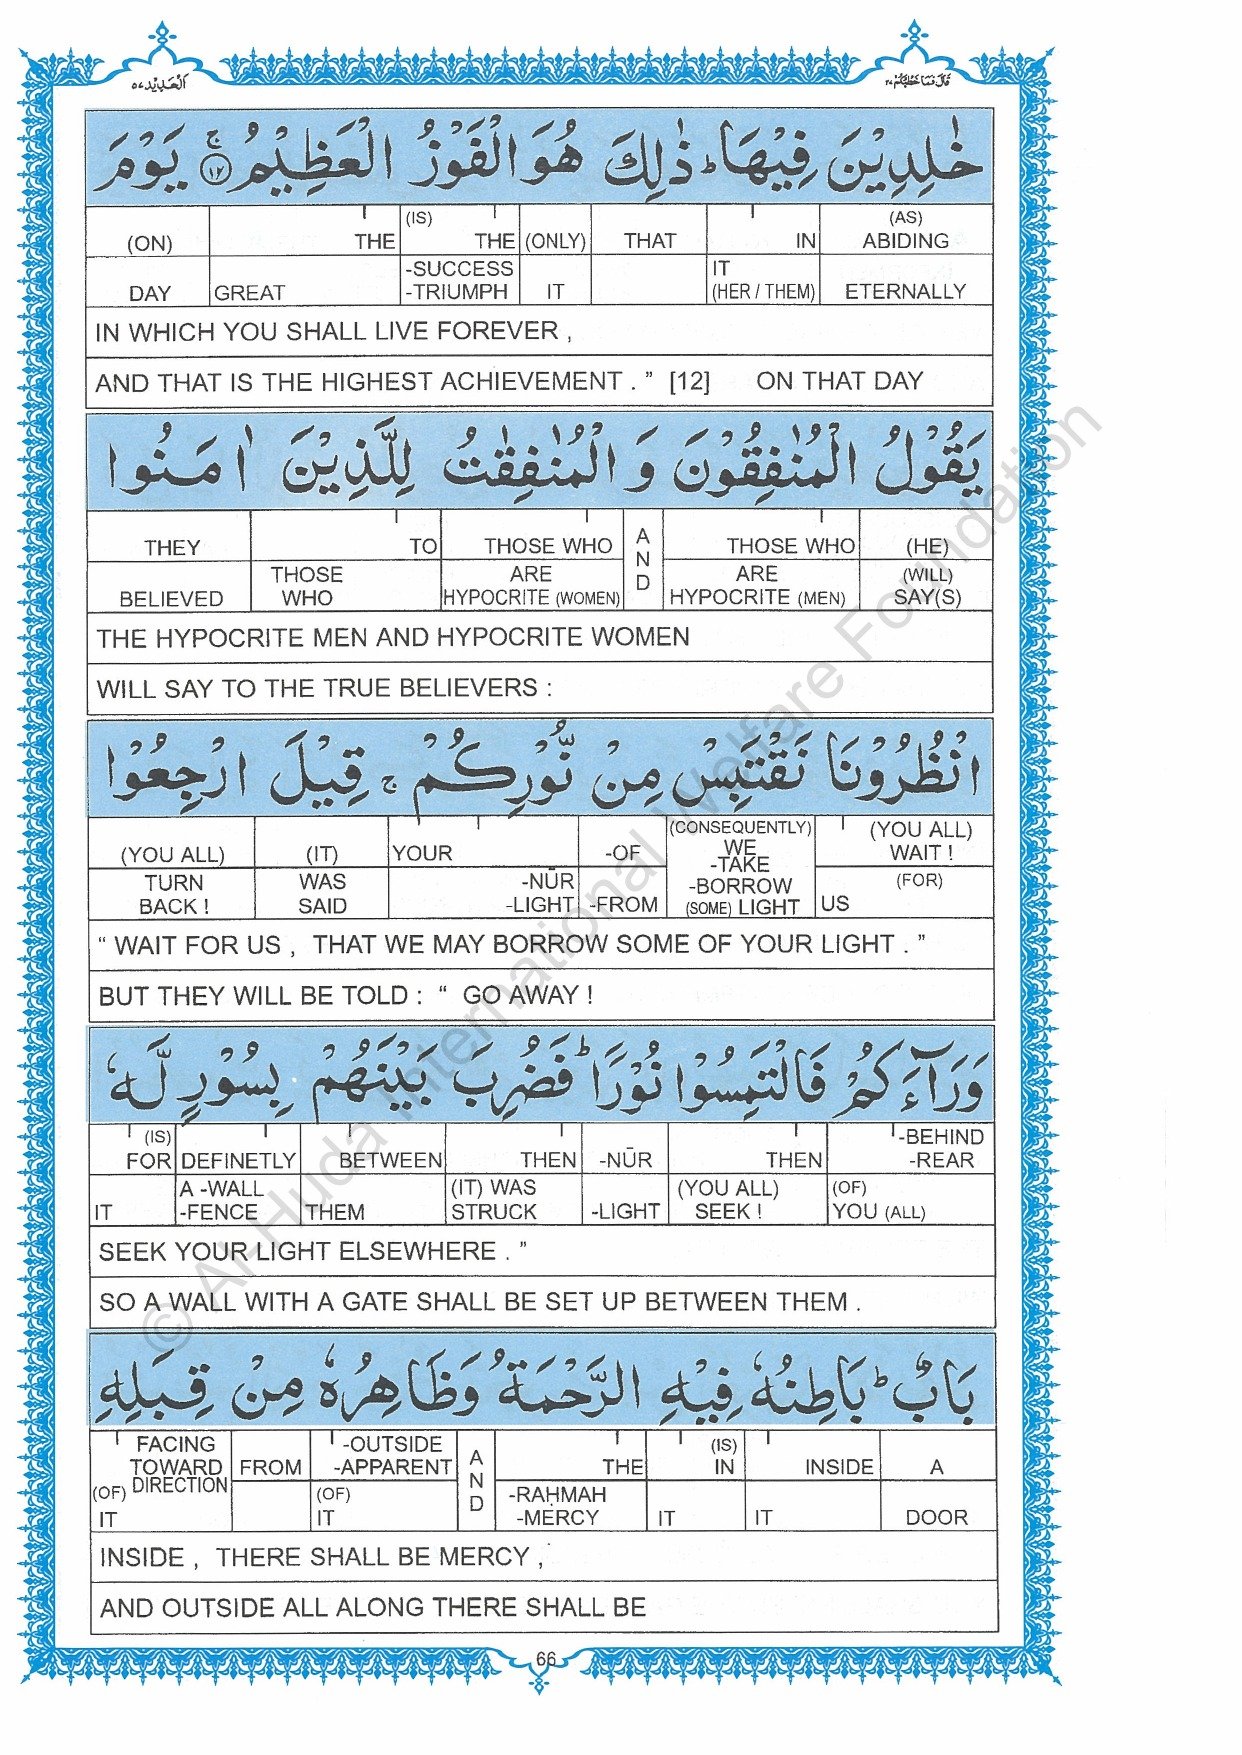 قَالَ فَمَا خَطْبُكُمْ ٢٧
اَلْحَدِيْد ٥٧
خٰلِدِيْنَ فِيْهَا ؕ ذٰلِكَ هُوَ الْفَوْزُ الْعَظِيْمُ ۚ ﴿١٢﴾ يَوْمَ
(ON) THE (IS) THE (ONLY) THAT IN (AS) ABIDING
DAY GREAT -SUCCESS -TRIUMPH IT IT (HER / THEM) ETERNALLY
IN WHICH YOU SHALL LIVE FOREVER ,
AND THAT IS THE HIGHEST ACHIEVEMENT . ” [12] ON THAT DAY
يَقُوْلُ الْمُنٰفِقُوْنَ وَ الْمُنٰفِقٰتُ لِلَّذِيْنَ اٰمَنُوا
THEY TO THOSE WHO AND THOSE WHO (HE)
BELIEVED THOSE WHO ARE HYPOCRITE (WOMEN) ARE HYPOCRITE (MEN) (WILL) SAY(S)
THE HYPOCRITE MEN AND HYPOCRITE WOMEN
WILL SAY TO THE TRUE BELIEVERS :
انْظُرُوْنَا نَقْتَبِسْ مِنْ نُّوْرِكُمْ ۚ قِيْلَ ارْجِعُوْا
(YOU ALL) (IT) YOUR -OF (CONSEQUENTLY) WE -TAKE -BORROW (SOME) LIGHT (YOU ALL) WAIT !
TURN BACK ! WAS SAID -NŪR -LIGHT -FROM US (FOR)
“ WAIT FOR US , THAT WE MAY BORROW SOME OF YOUR LIGHT . ”
BUT THEY WILL BE TOLD : “ GO AWAY !
وَرَآءَكُمْ فَالْتَمِسُوْا نُوْرًا ؕ فَضُرِبَ بَيْنَهُمْ بِسُوْرٍ لَّهٗ
(IS) FOR DEFINETLY BETWEEN THEN -NŪR THEN -BEHIND -REAR
IT A -WALL -FENCE THEM (IT) WAS STRUCK -LIGHT (YOU ALL) SEEK ! (OF) YOU (ALL)
SEEK YOUR LIGHT ELSEWHERE . ”
SO A WALL WITH A GATE SHALL BE SET UP BETWEEN THEM .
بَابٌ ؕ بَاطِنُهٗ فِيْهِ الرَّحْمَةُ وَظَاهِرُهٗ مِنْ قِبَلِهِ
FACING TOWARD DIRECTION FROM -OUTSIDE -APPARENT AND THE (IS) IN INSIDE A
(OF) IT (OF) IT -RAḤMAH -MERCY IT IT DOOR
INSIDE , THERE SHALL BE MERCY ,
AND OUTSIDE ALL ALONG THERE SHALL BE
66
© Al-Huda International Welfare Foundation